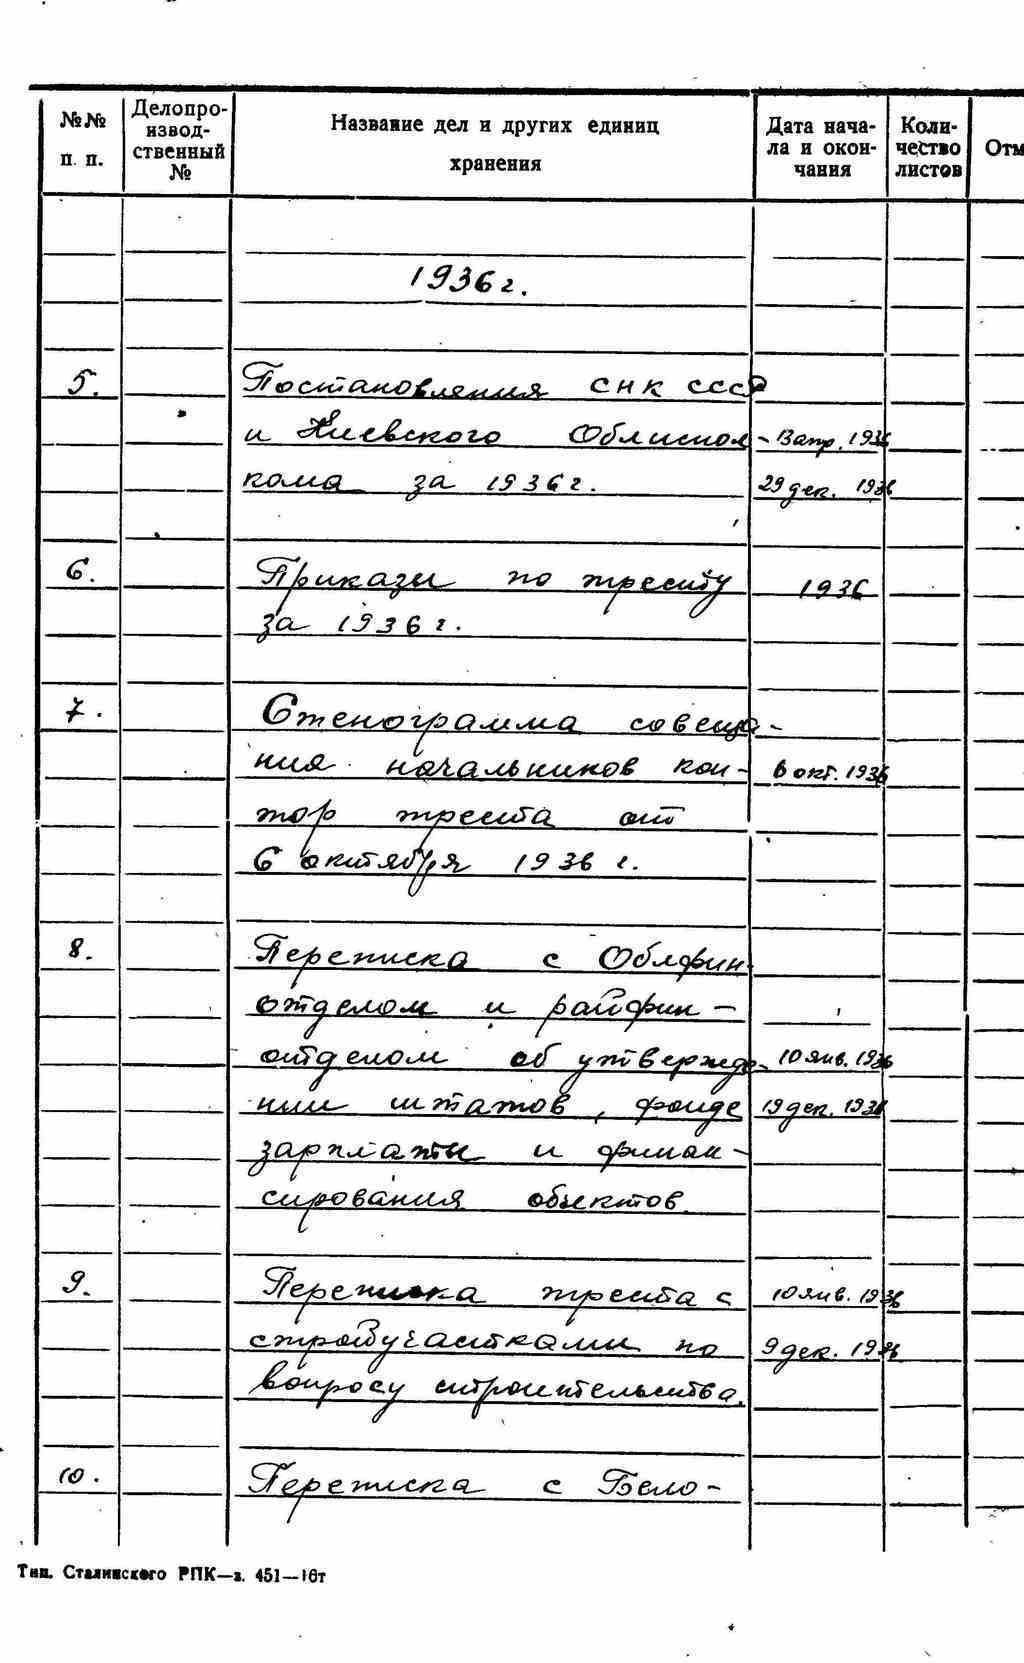 №№ п. п.
Делопроизвод-ственный №
Название дел и других единиц хранения
Дата начала и окончания
Количество листов
Отм
1936 г.
5. Постановления СНК СССР
и Киевского Облиспол- 13 апр. 1936
кома за 1936 г. 29 дек. 1936
6. Приказы по тресту 1936
за 1936 г.
7. Стенограмма совеща-
ния начальников кон- 6 окт. 1936
тор треста от
6 октября 1936 г.
8. Переписка с Облфин-
отделом и райфин-
отделом об утвержде- 10 янв. 1936
нии штатов, фонде 19 дек. 1936
зарплаты и финан-
сирования объектов.
9. Переписка треста с 10 янв. 1936
стройучастками по 9 дек. 1936
вопросу строительства.
10. Переписка с Бело-
Тип. Сталинского РПК—з. 451—16т